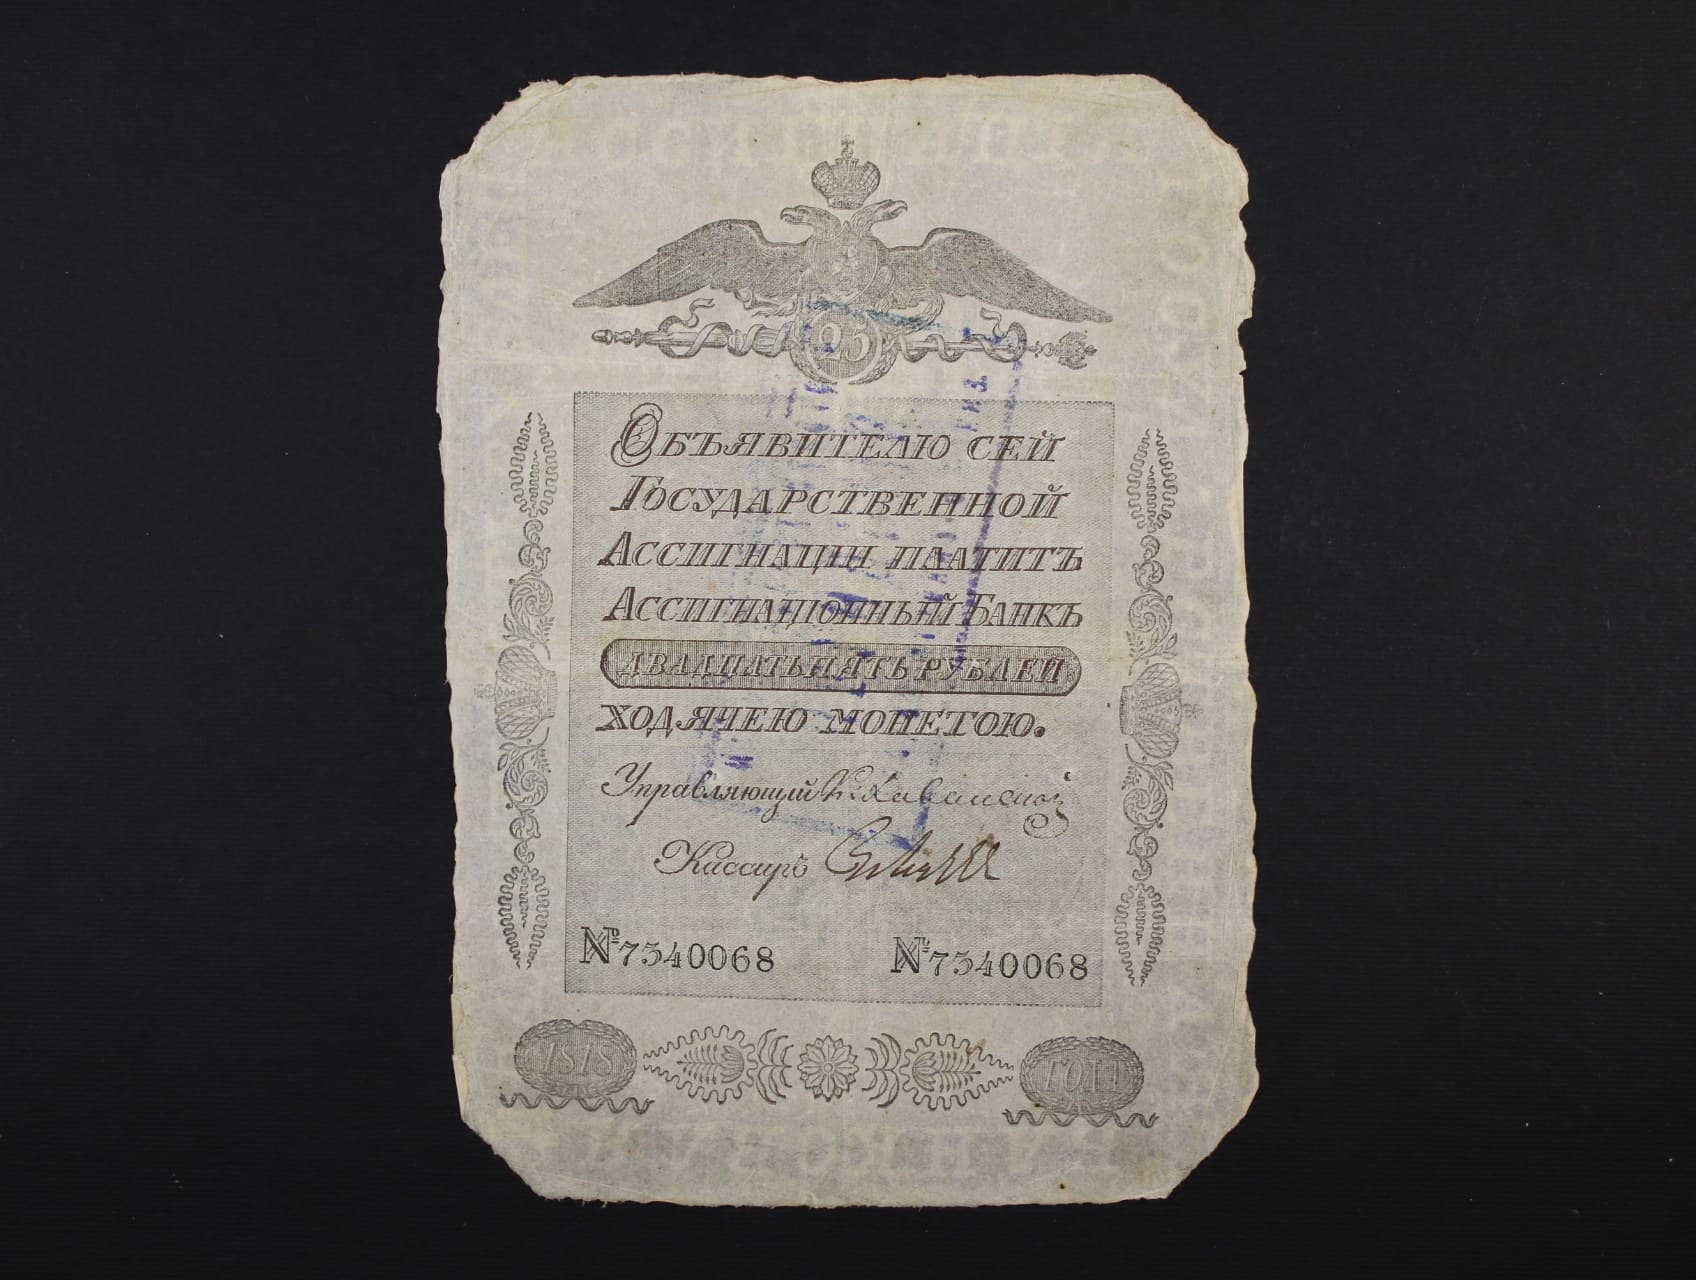 25
Объявителю сей
Государственной
Ассигнаціи платитъ
Ассигнаціонный Банкъ
двадцать пять рублей
ходячею монетою.
Управляющий К: Хованской
Кассиръ
№ 7340068 № 7340068
1818 года